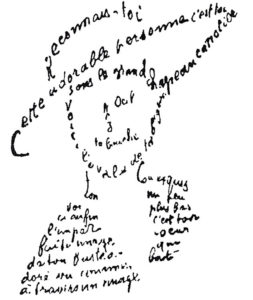 Reconnais-toi
Cette adorable personne c'est toi
Sous le grand chapeau canotier
Oeil
Nez
la bouche
Voici l'ovale de ta figure
Ton cou exquis
Voi
ci enfin
l'impar
faite image
de ton buste a
doré vu comme
à travers un nuage
un peu
plus bas
c'est ton
coeur
qui
bat